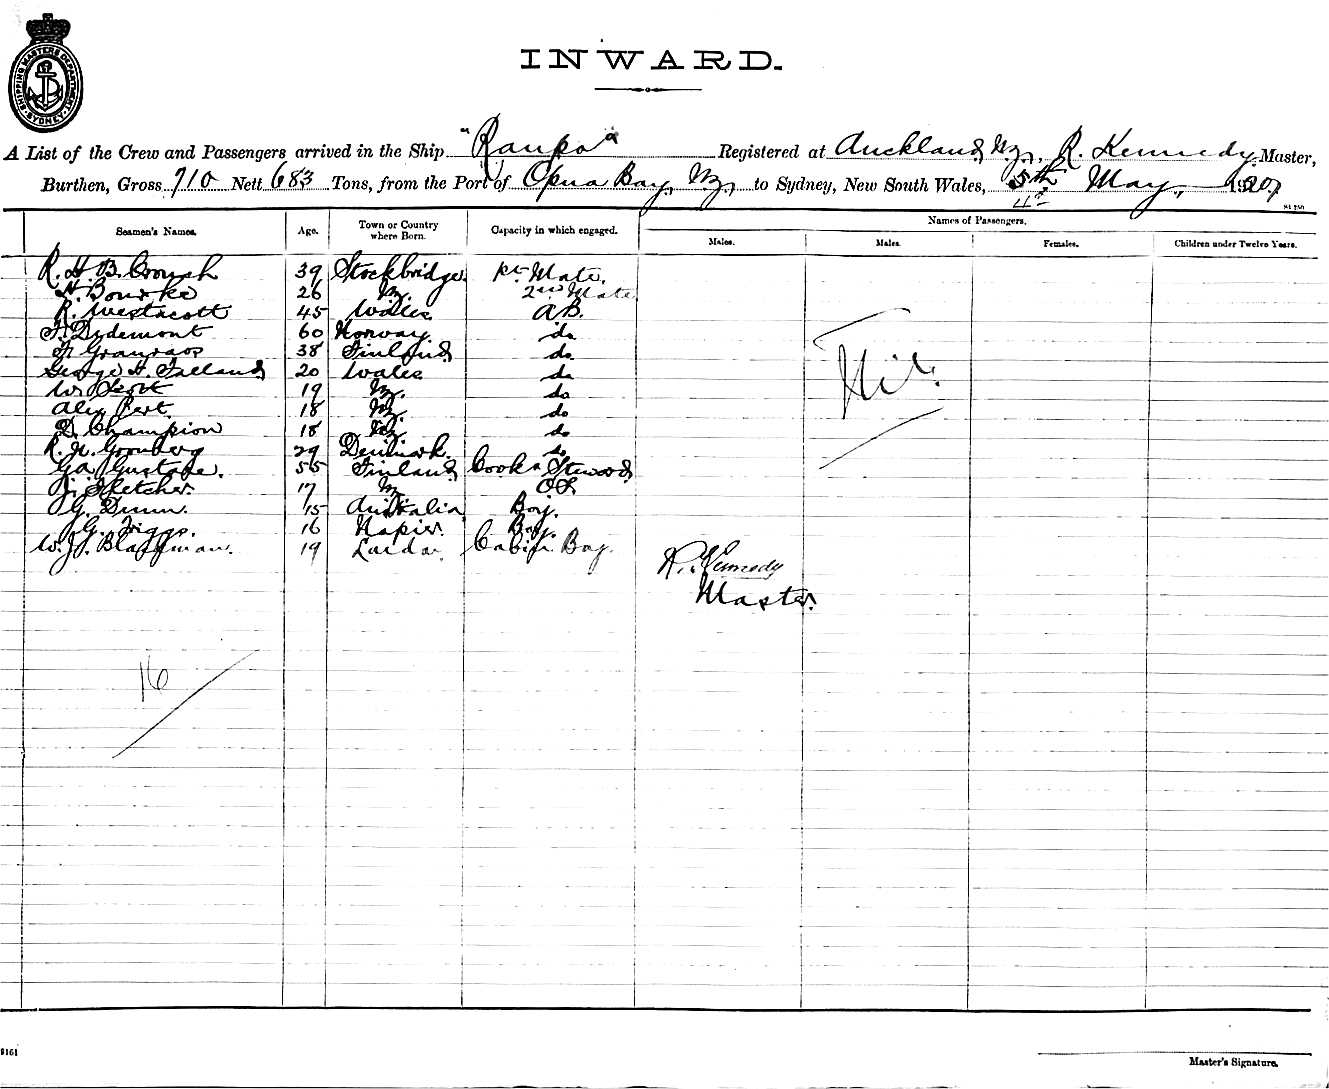 SHIPPING MASTERS DEPARTMENT SYDNEY
INWARD.
A List of the Crew and Passengers arrived in the Ship "Raupo" Registered at Auckland, Nz, R. Kennedy Master,
Burthen, Gross 710 Nett 683 Tons, from the Port of Opua Bay, Nz, to Sydney, New South Wales, 5th May, 1907
4th
Seamen's Names. Age. Town or Country where Born. Capacity in which engaged. Names of Passengers.
Males. Males. Females. Children under Twelve Years.
R. H. B. Crouch 39 Stockbridge Mate.
H. Bourke 26 Nz. 2nd Mate
R. Westacott 45 Wales AB.
F. Dydemont 60 Norway do
F. 38 Finland do
George H. Falland 20 Wales do
W. Scott 19 Nz. do
Alex Pert 18 Nz. do
D. Champion 18 Nz do
R. N. 29 Denmark. do
Ga Gustafe. 55 Finland Cook & Steward
J. Fletcher. 17 Nz OS.
G. Dunn. 15 Australia Boy.
G. Triggs. 16 Napier. Boy.
W. J. 19 Cabin Boy.
Nil.
R. Kennedy
Master.
16
9161
Master's Signature.